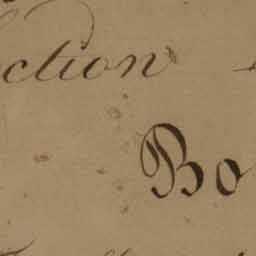 ction
Bo